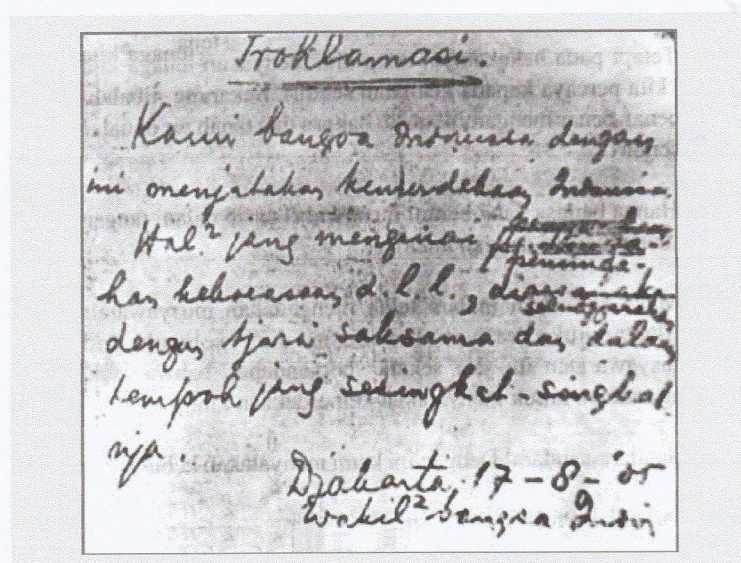 Proklamasi.
Kami bangsa Indonesia dengan
ini menjatakan kemerdekaan Indonesia.
Hal² jang mengenai
han kekoeasaan d.l.l.,
dengan tjara saksama dan dalam
tempoh jang sesingkat-singkat
nja.
Djakarta 17-8-'05
Wakil² bangsa Indon